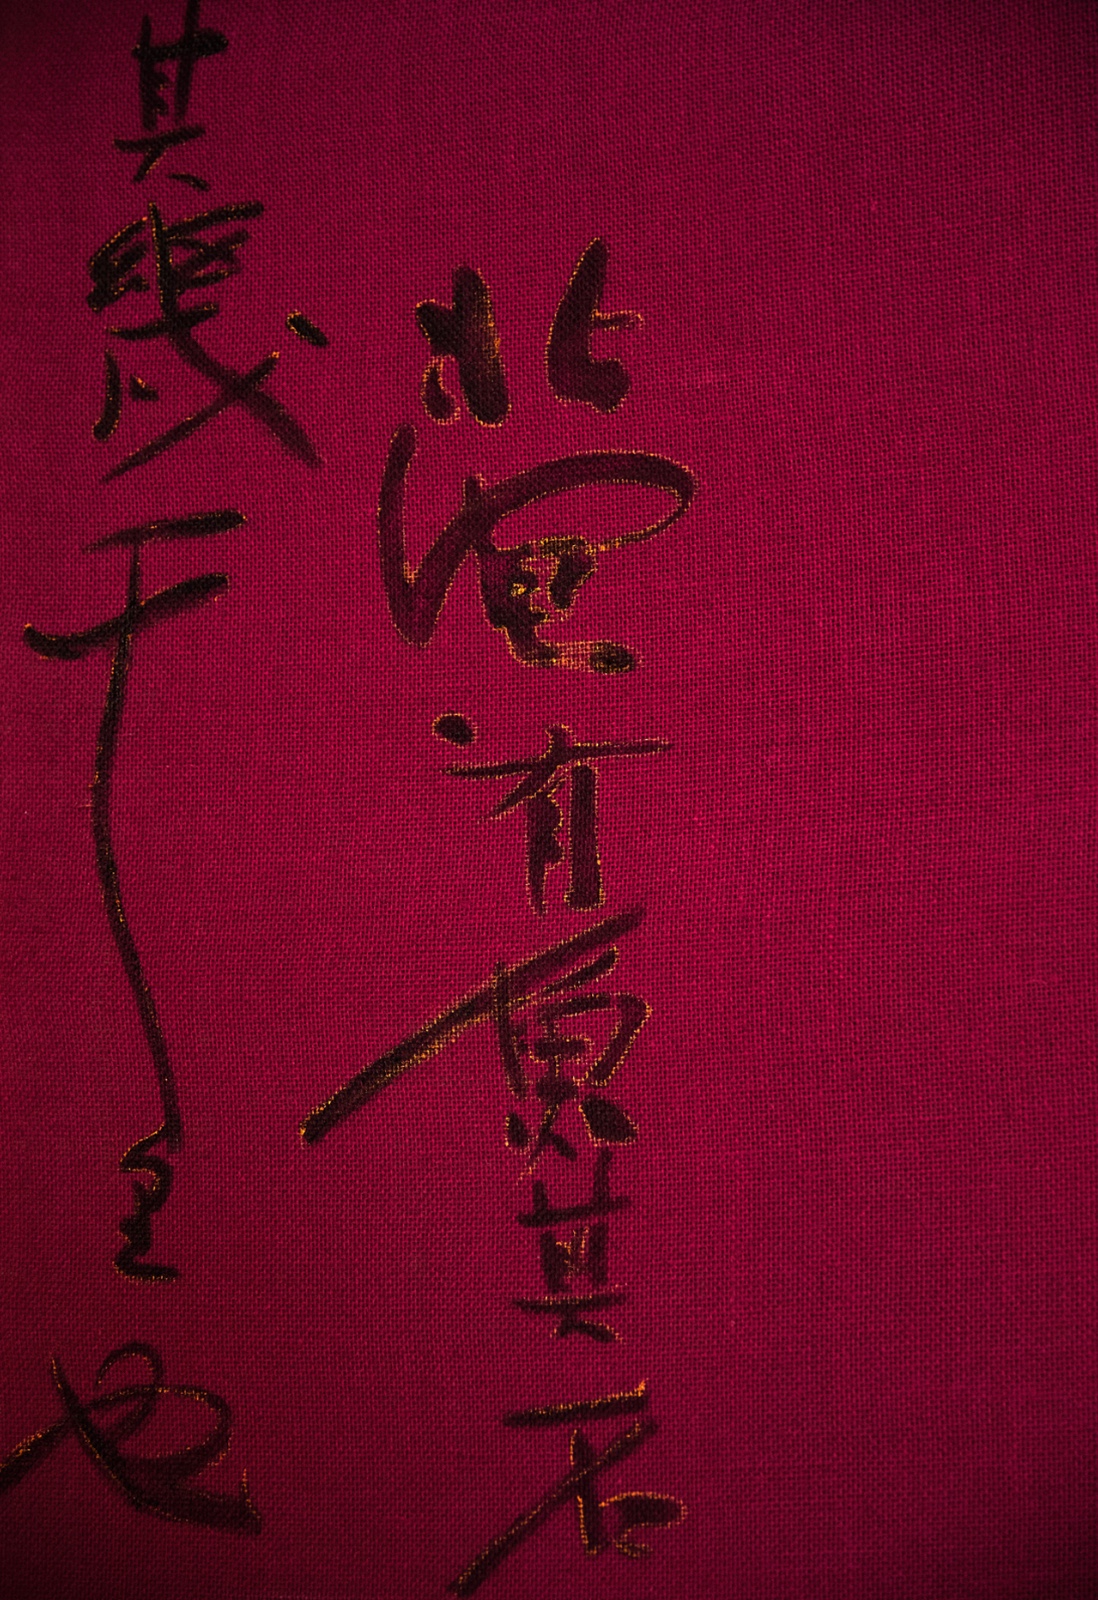 北溟有魚其名
其幾千里也